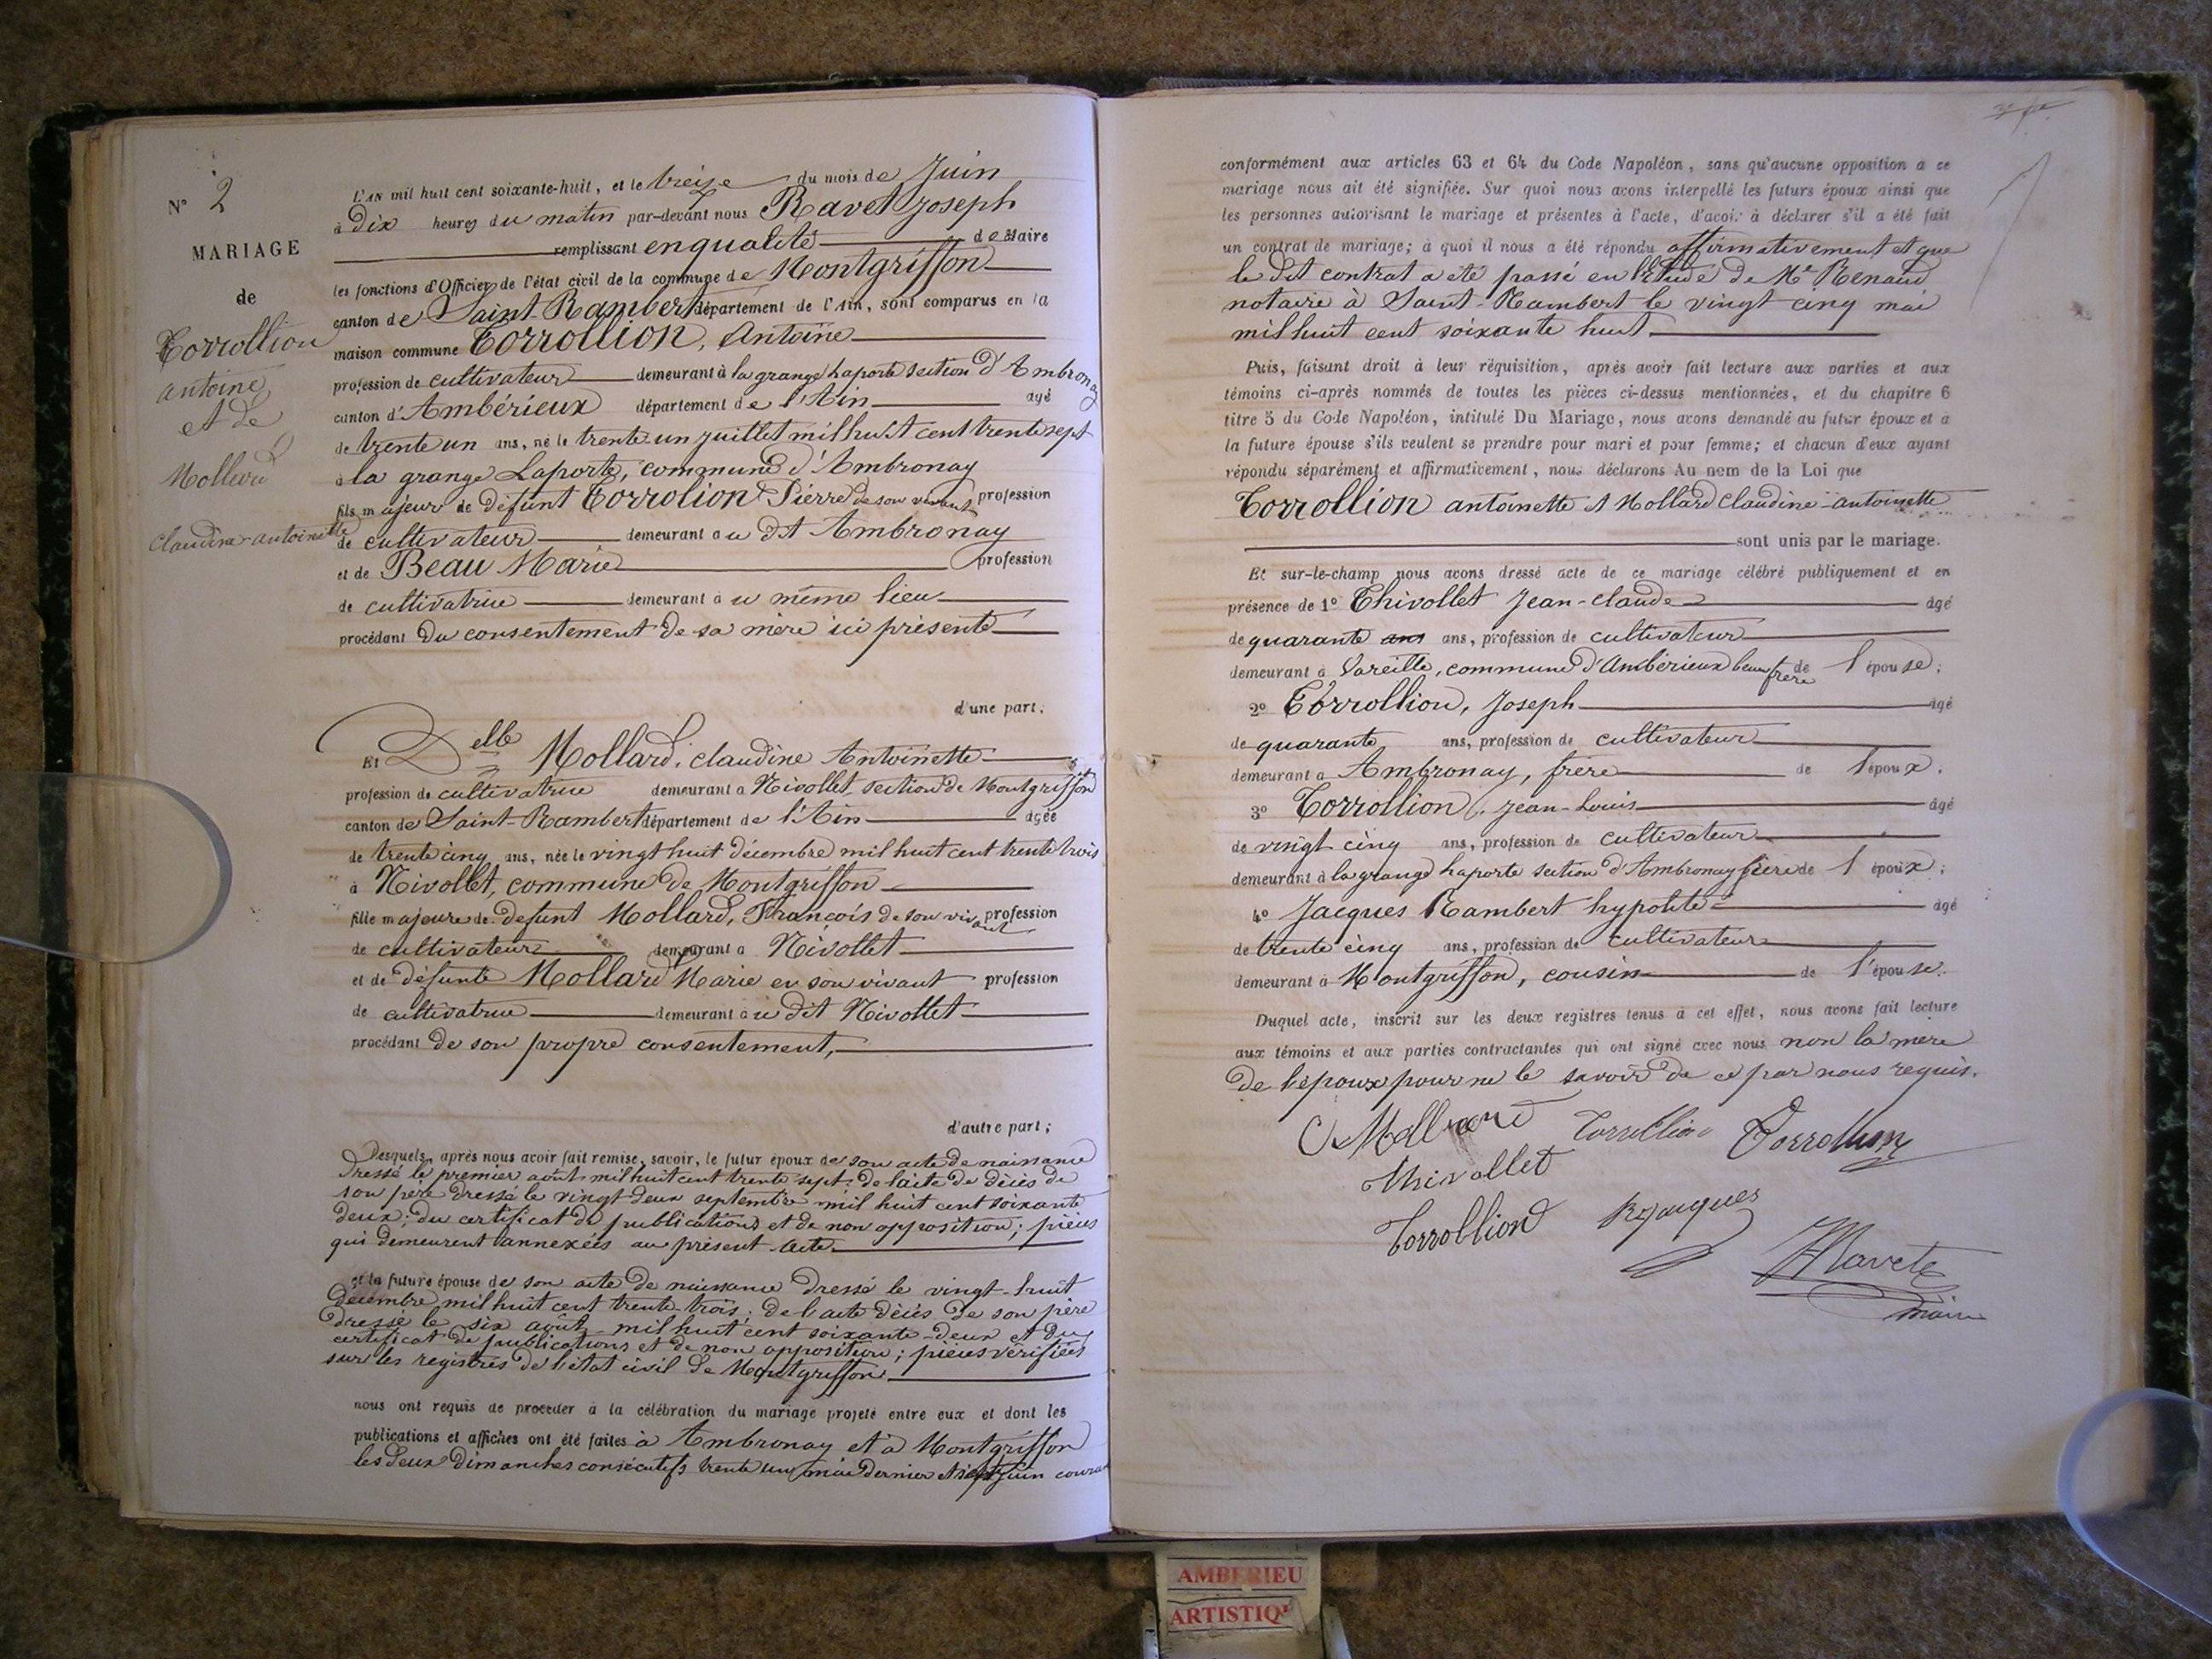 N° 2
MARIAGE
de
Torrollion
antoine
et de
Mollard
Claudine-antoinette
L'AN mil huit cent soixante-huit, et le treize du mois de Juin
à Dix heures du matin par-devant nous Ravet Joseph
remplissant en qualité de Maire
les fonctions d'Officier de l'état civil de la commune de Montgriffon
canton de Saint-Rambert département de l'Ain, sont comparus en la
maison commune Torrollion, Antoine
profession de cultivateur demeurant à la grange Laporte section d'Ambronay
canton d'Ambérieux département de l'Ain âgé
de trente un ans, né le trente-un juillet mil huit cent trente sept
à la grange Laporte, commune d'Ambronay
fils majeur de défunt Torrolion Pierre de son vivant profession
de cultivateur demeurant au dit Ambronay
et de Beau Marie profession
de cultivatrice demeurant à u même lieu
procédant du consentement de sa mère ici présente
d'une part;
Et Delle Mollard, claudine Antoinette
profession de cultivatrice demeurant à Nivollet, section de Montgriffon
canton de Saint-Rambert département de l'Ain âgée
de trente cinq ans, née le vingt huit décembre mil huit cent trente trois
à Nivollet, commune de Montgriffon
fille majeure de défunt Mollard, François de son vivant profession
de cultivateur demeurant à Nivollet
et de défunte Mollard Marie en son vivant profession
de cultivatrice demeurant à u dit Nivollet
procédant de son propre consentement,
d'autre part;
Desquels, après nous avoir fait remise, savoir, le futur époux de son acte de naissance
dressé le premier août mil huit cent trente sept; de l'acte de décès de
son père dressé le vingt deux septembre mil huit cent soixante
deux; du certificat de publications et de non opposition; pièces
qui demeurent annexées au présent acte.
et la future épouse de son acte de naissance dressé le vingt-huit
décembre mil huit cent trente-trois; de l'acte décès de son père
dressé le six août mil huit cent soixante-deux et du
certificat de publications et de non opposition; pièces vérifiées
sur les registres de l'état civil de Montgriffon.
nous ont requis de procéder à la célébration du mariage projeté entre eux et dont les
publications et affiches ont été faites à Ambronay et à Montgriffon
les deux dimanches consécutifs trente un mai dernier et sept juin courant
conformément aux articles 63 et 64 du Code Napoléon, sans qu'aucune opposition à ce
mariage nous ait été signifiée. Sur quoi nous avons interpellé les futurs époux ainsi que
les personnes autorisant le mariage et présentes à l'acte, d'avoir à déclarer s'il a été fait
un contrat de mariage; à quoi il nous a été répondu affirmativement et que
le dit contrat a été passé en l'Etude de Me Renaud
notaire à Saint-Rambert le vingt cinq mai
mil huit cent soixante huit
Puis, faisant droit à leur réquisition, après avoir fait lecture aux parties et aux
témoins ci-après nommés de toutes les pièces ci-dessus mentionnées, et du chapitre 6
titre 5 du Code Napoléon, intitulé Du Mariage, nous avons demandé au futur époux et à
la future épouse s'ils veulent se prendre pour mari et pour femme; et chacun d'eux ayant
répondu séparément et affirmativement, nous déclarons Au nom de la Loi que
Torrollion antoinette et Mollard Claudine-antoinette
sont unis par le mariage.
Et sur-le-champ nous avons dressé acte de ce mariage célébré publiquement et en
présence de 1° Thivollet Jean-claude âgé
de quarante ans ans, profession de cultivateur
demeurant à Vareille, commune d'Ambérieux beau frère de l'épouse;
2° Torrollion, Joseph âgé
de quarante ans, profession de cultivateur
demeurant à Ambronay, frère de l'époux.
3° Torrollion, Jean-Louis âgé
de vingt cinq ans, profession de cultivateur
demeurant à la grange Laporte section d'Ambronay frère de l'époux;
4° Jacques Rambert hypolite âgé
de trente cinq ans, profession de cultivateur
demeurant à Montgriffon, cousin de l'épouse.
Duquel acte, inscrit sur les deux registres tenus à cet effet, nous avons fait lecture
aux témoins et aux parties contractantes qui ont signé avec nous non la mère
de l'époux pour ne le savoir de ce par nous requis.
C Mollard Torrollion Torrollion
Thivollet
Torrollion R Jacques
J Ravet
maire
AMBERIEU
ARTISTIQ